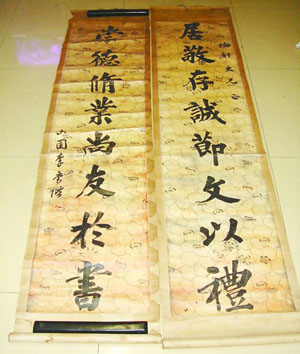 居敬存誠節文以禮
崇德脩業尚友於書